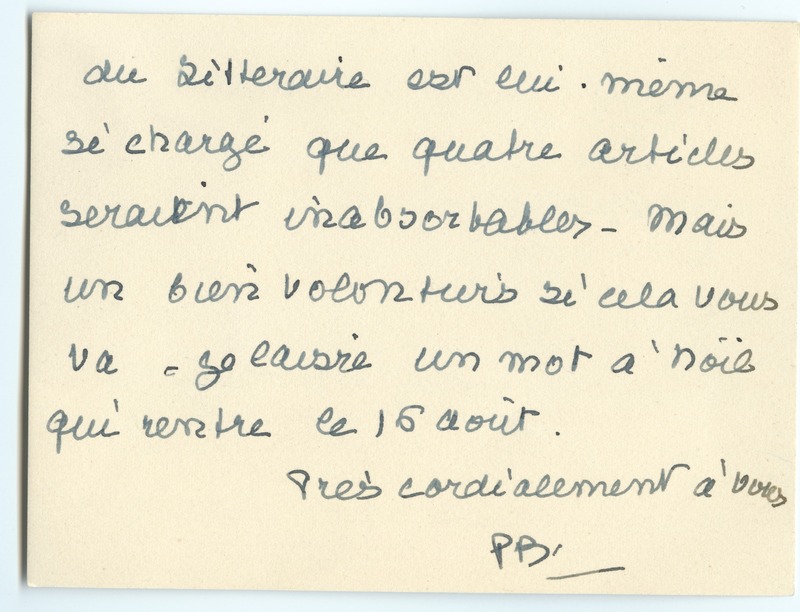 du littéraire est lui-même
si chargé que quatre articles
seraient inabsorbables - Mais
un bien volontiers si cela vous
va - Je laisse un mot à Noël
qui rentre le 16 août.
Très cordialement à vous
PB.